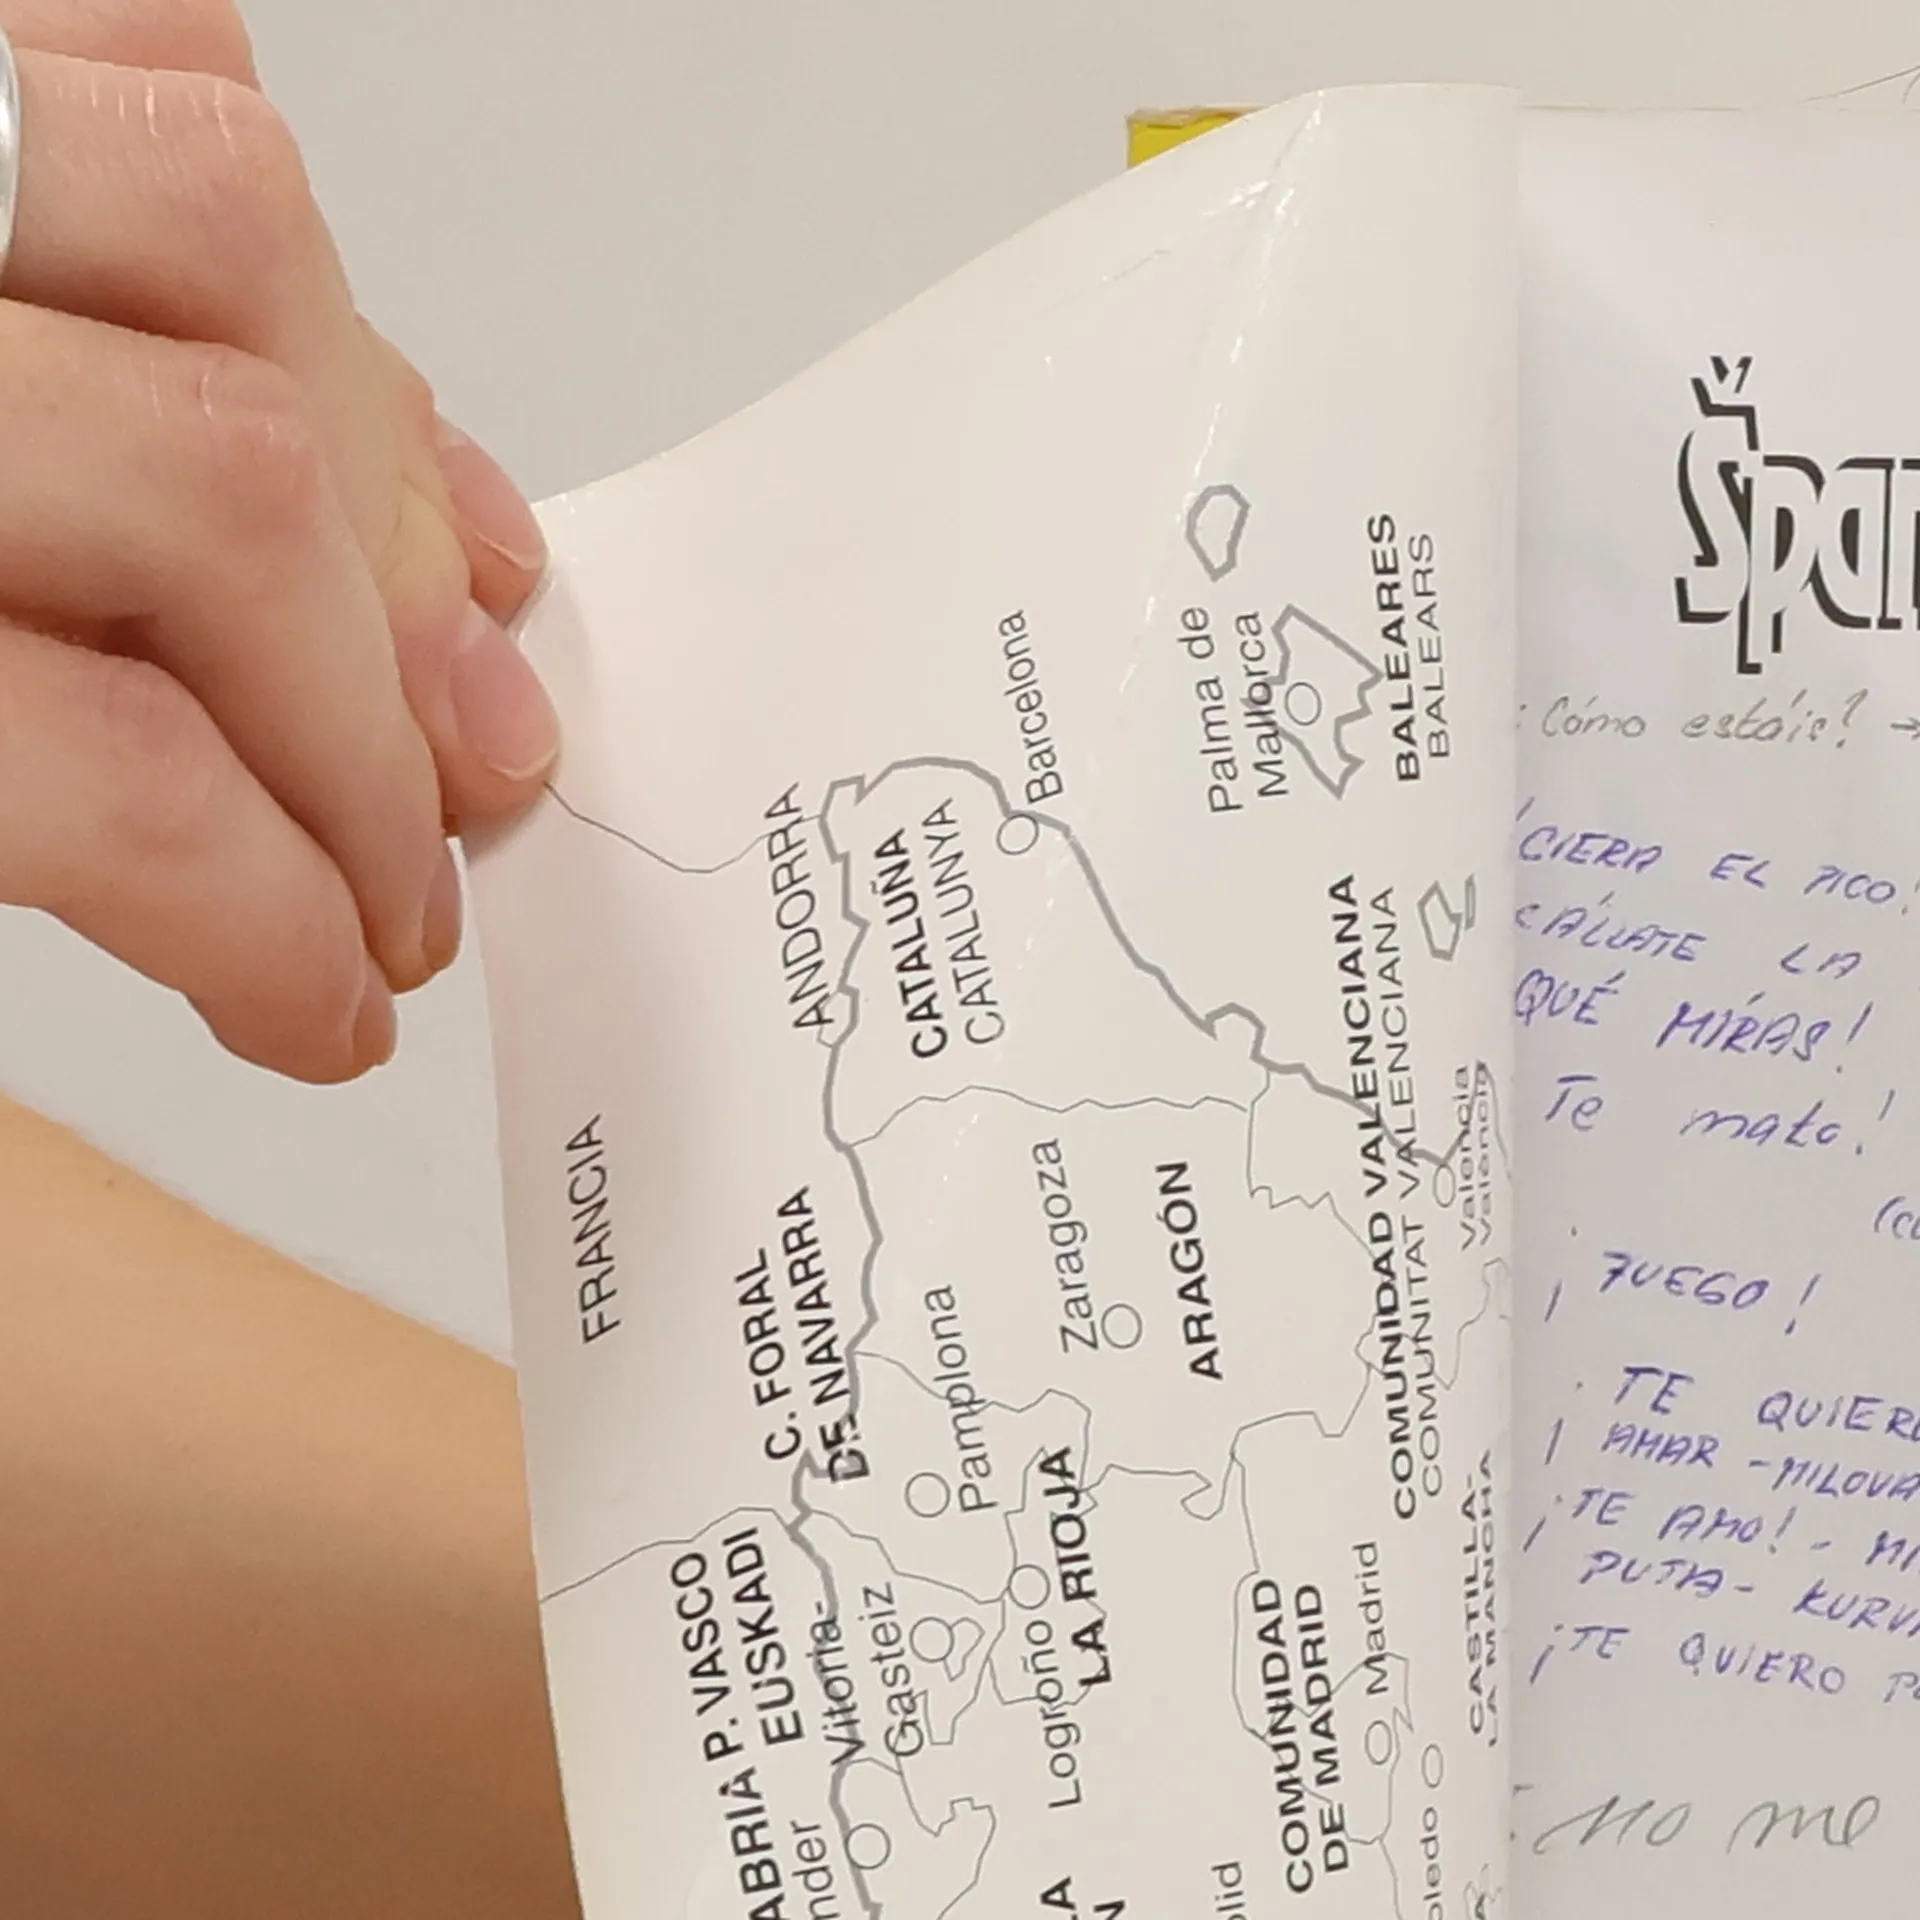 FRANCIA
ANDORRA
CATALUÑA
CATALUNYA
Barcelona
Palma de
Mallorca
BALEARES
BALEARS
C. FORAL
DE NAVARRA
Pamplona
Zaragoza
ARAGÓN
COMUNIDAD VALENCIANA
COMUNITAT VALENCIANA
Valencia
València
P. VASCO
EUSKADI
Vitoria-
Gasteiz
Logroño
LA RIOJA
COMUNIDAD
DE MADRID
Madrid
CASTILLA-
LA MANCHA
ABRIA
nder
LA
N
olid
oledo
Špan
¿Cómo estáis? →
¡CIERA EL PICO!
CÁLLATE LA
QUÉ MIRAS!
Te mato!
¡FUEGO!
TE QUIERO
¡AMAR - MILOVA
¡TE AMO! - MI
PUTA - KURVA
¡TE QUIERO
no me